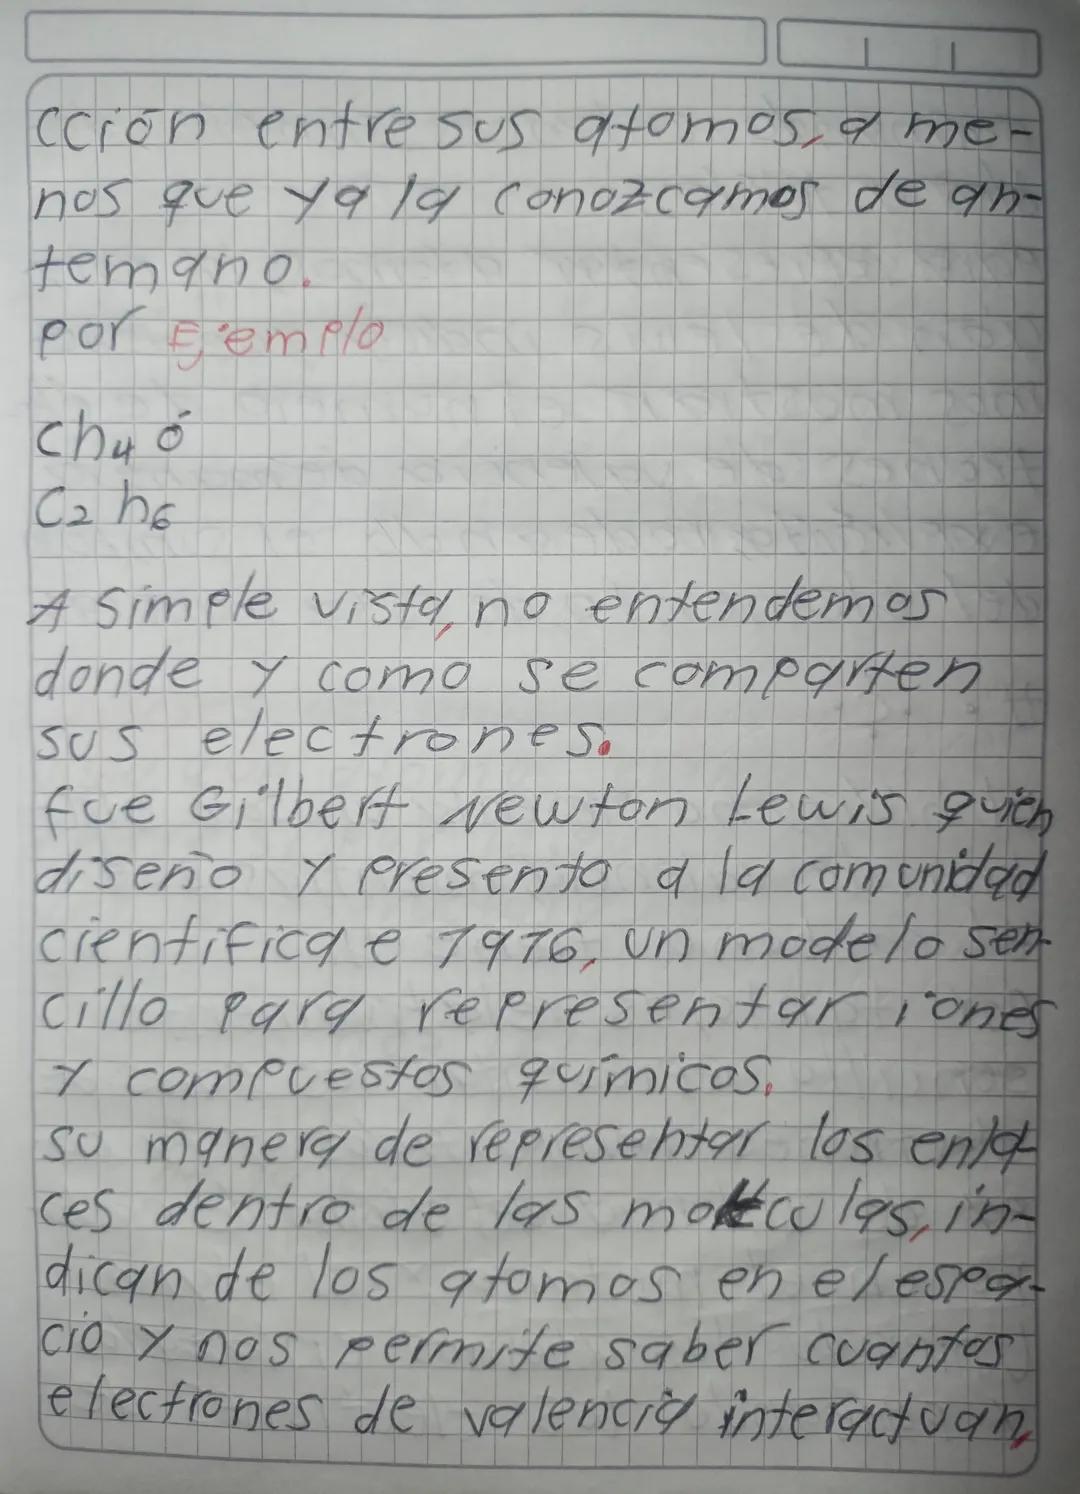 cción entre sus atomos, a me-
nos que ya la conozcamos de an-
temano.
por Ejemplo
Ch4 ó
C2 h6
A simple vista, no entendemos
donde y como se comparten
sus electrones.
fue Gilbert Newton Lewis quien
diseño y presento a la comunidad
cientifica e 1916, un modelo sen-
cillo para representar iones
y compuestos químicos.
su manera de representar los enla
ces dentro de las moléculas, in-
dican de los atomos en el espa-
cio y nos permite saber cuantos
electrones de valencia interactuan,